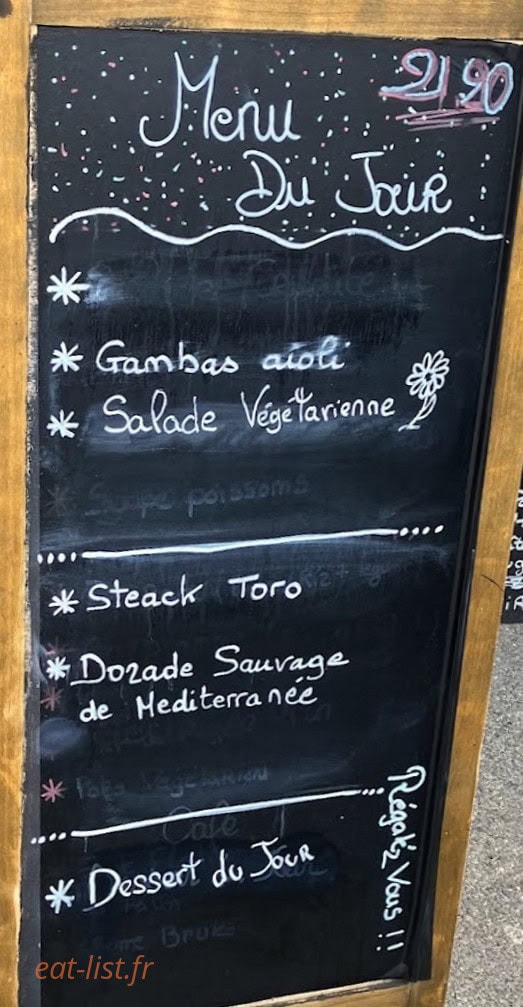 Menu
Du Jour
21,90
Gambas aïoli
Salade Végétarienne
Soupe poissons
Steack Toro
Dorade Sauvage
de Mediterranée
Café
Dessert du Jour
Régalez Vous !!
eat-list.fr